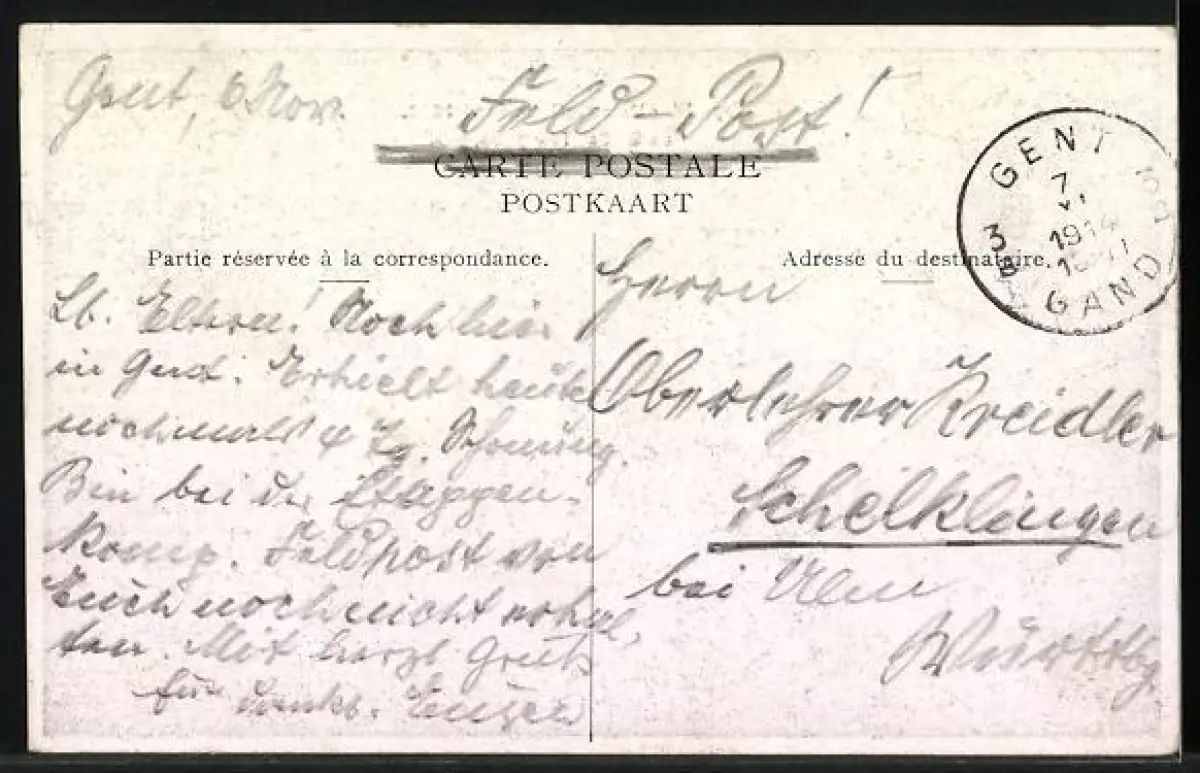 Gent, 6 Nov.
Feld-Post!
CARTE POSTALE
POSTKAART
Partie réservée à la correspondance.
Adresse du destinataire.
GENT
7
XI
1914
3B
GAND
Lb. Eltern! Noch hier
in Gent. Erhielt heute
nochmals 4 Tg. Schonung.
Bin bei der Etappen-
komp. Feldpost von
Euch noch nicht erhal-
ten. Mit herzl Gruß
Eugen
Herrn
Oberlehrer Kreidler
Schelklingen
bei Ulm
Württbg